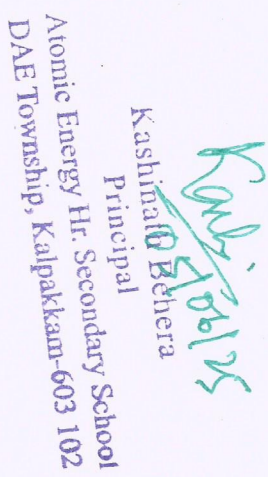 05/06/25
Kashinath Behera
Principal
Atomic Energy Hr. Secondary School
DAE Township, Kalpakkam-603 102